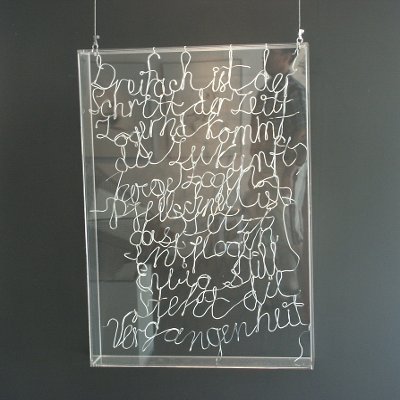 Dreifach ist der
Schritt der Zeit
Zögernd kommt
die Zukunft
hergezogen
pfeilschnell ist
das Jetzt
entflogen
Ewig still
steht die
Vergangenheit